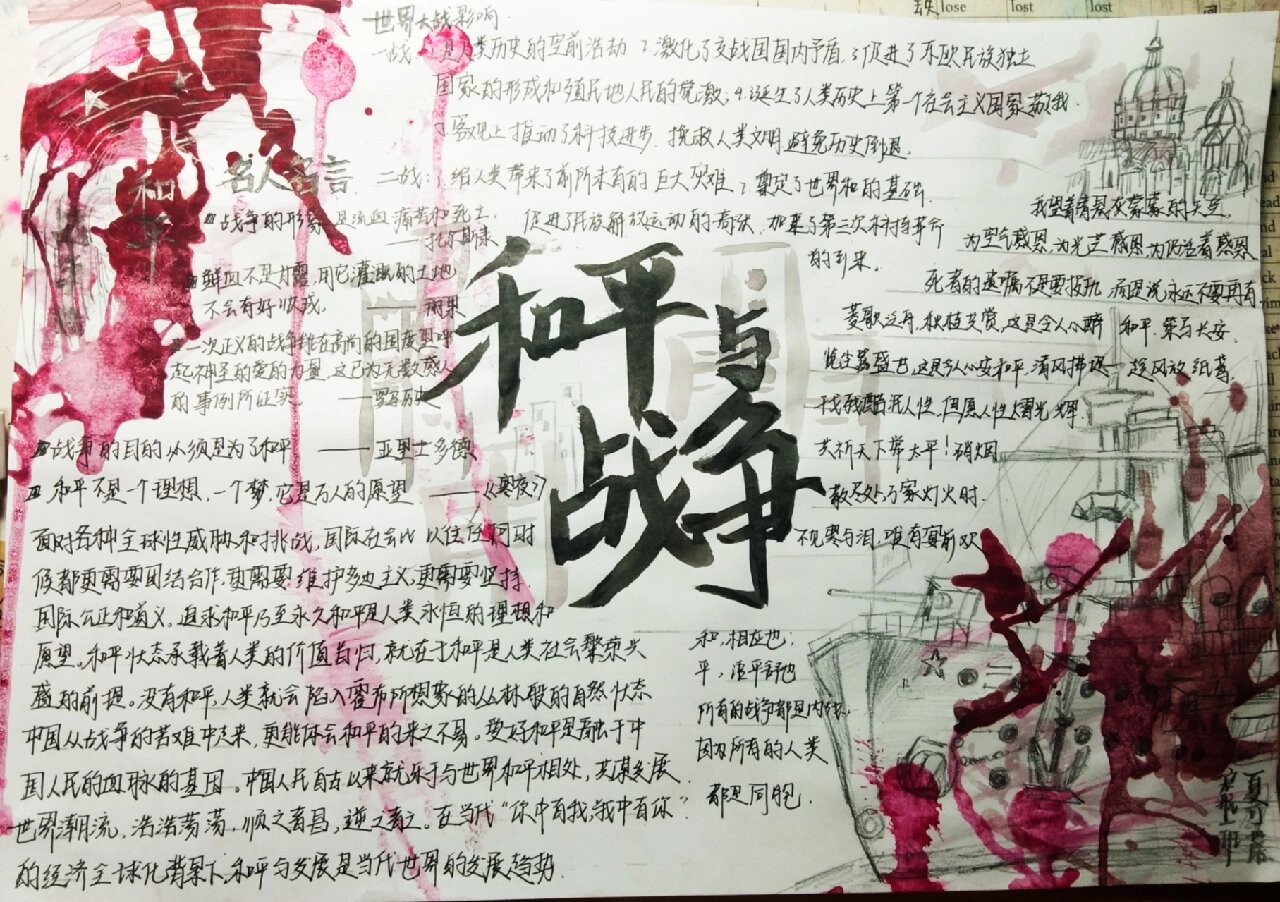 世界大战影响
一战: 是人类历史的空前浩劫 2.激化了交战国国内矛盾 3.促进了东欧民族独立
国家的形成和殖民地人民的觉激, 4.诞生了人类历史上第一个社会主义国家苏俄.
5.客观上推动了科技进步.
二战: 1.给人类带来了前所未有的巨大灾难 2.奠定了世界和的基础.
挽救人类文明避免历史倒退.
促进了民族解放运动的高
的到来.
名人名言
和平
战争的形象是流血痛苦和死亡.
——托尔斯泰
鲜血不是甘露,用它灌溉的土地
不会有好收成. ——雨果
一次正义的战争能在高尚的国度里呼
起神圣的爱的力量,这已为无数感人
的事例所证实.
战争的目的必须是为了和平 ——亚里士多德
和平不是一个理想,一个梦,它是万人的愿望 ——《寒夜》
和平与
战争
我望着清晨灰蒙蒙的天空,
为空气感恩,为光芒感恩,为仍活着感恩
死者的遗嘱不是要报仇,而是说永远不要再有
菱歌泛舟,秋桂
和平.策马长安
览尘嚣盛世,
清风拂堤
趁风放纸鸢.
人性,但愿人性熠光辉
共祈天下常太平!硝烟
散尽处,万家灯火时.
不见寒与泪,唯有宴前欢
面对各种全球性威胁和挑战,国际社会比以往任何时
候都更需要团结合作,更需要维护多边主义,更需要坚持
国际公正和道义,追求和平乃至永久和平是人类永恒的理想和
愿望。和平状态承载着人类的价值旨归,就在于和平是人类社会繁荣兴
盛的前提。没有和平,人类就会陷入霍布斯想象的丛林般的自然状态
中国从战争的苦难中走来,更能体会和平的来之不易。爱好和平是融于中
国人民的血脉的基因。中国人民自古以来就乐于与世界和平相处,共谋发展.
世界潮流,浩浩荡荡,顺之者昌,逆之者亡。在当代“你中有我,我中有你”
的经济全球化背景下,和平与发展是当代世界的发展趋势.
和,相应也;
平,语平舒也
所有的战争都是内战,
因为所有的人类
都是同胞.
lose
lost
lost